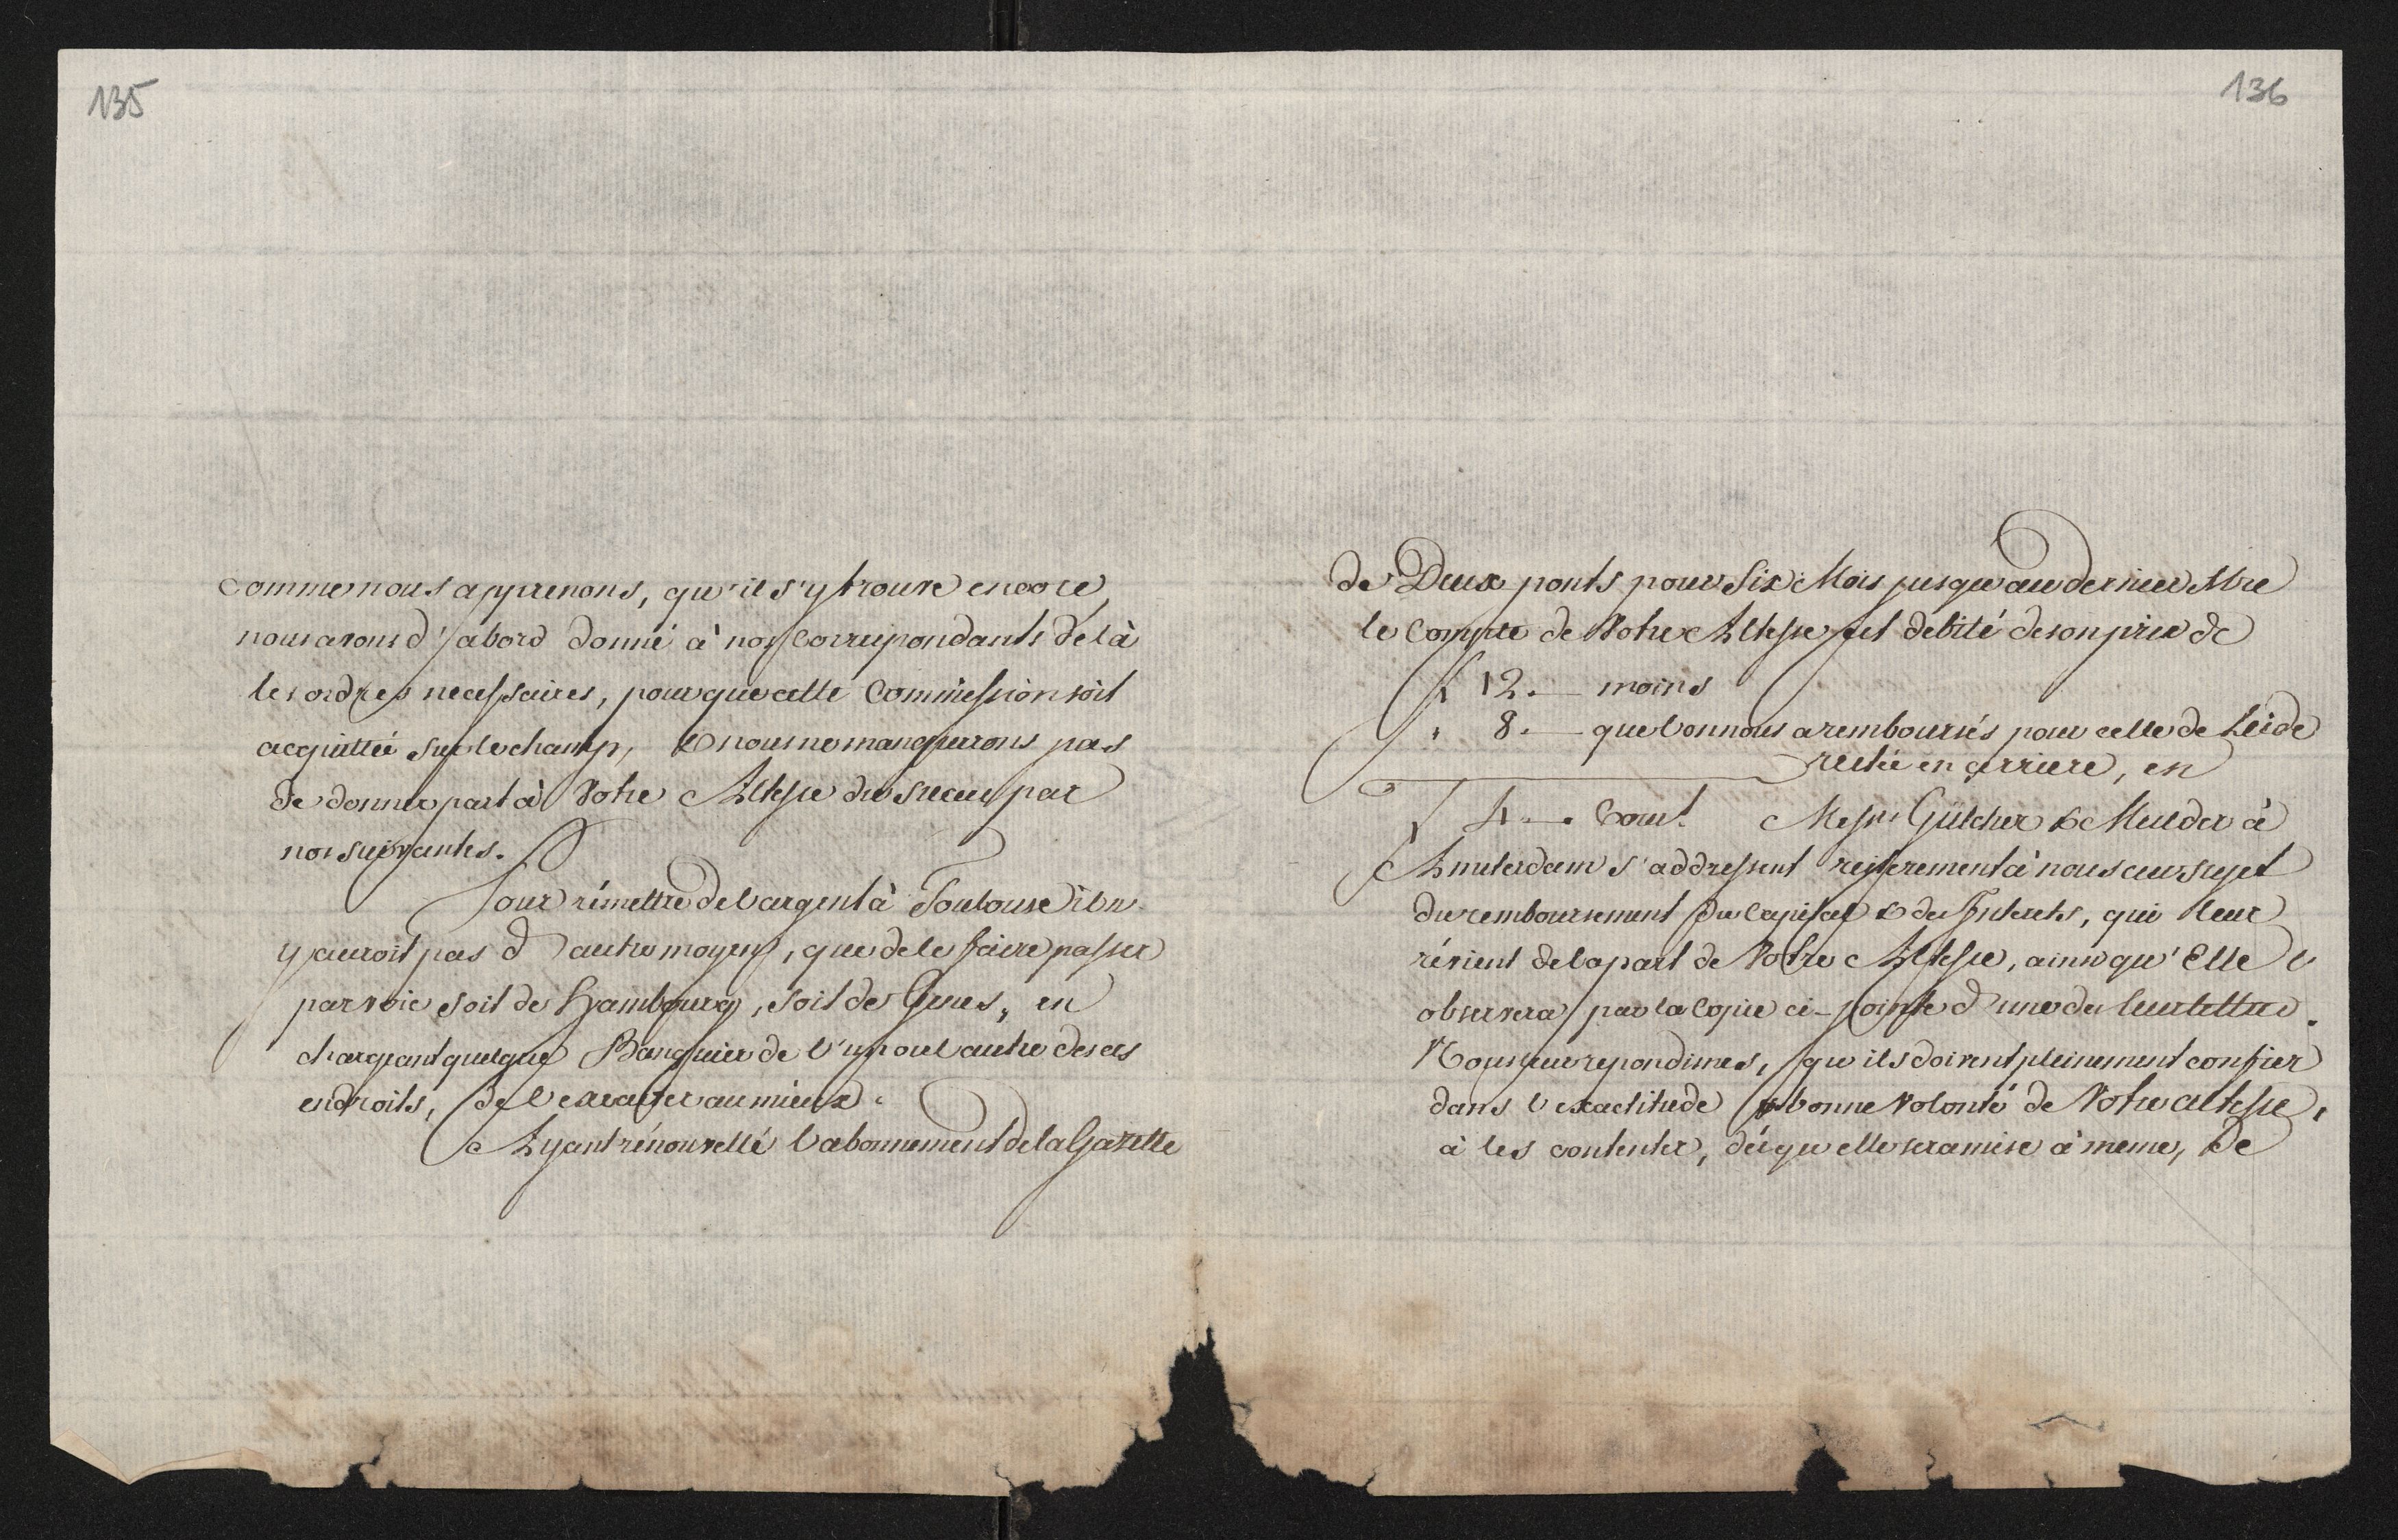 135
comme nous apprenons, qu'il s'y trouve encore,
nous avons d'abord donné à nos Correspondants de là
les ordres necessaires, pour que cette Commission soit
acquittée sur le champ, & nous ne manquerons pas
de donner part à Votre Altesse du succes par
nos suivantes.
Pour rémettre de l'argent à Toulouse il n
y auroit pas d'autre moyen, que de le faire passer
par voie soit de Hambourg, soit de Genes, en
chargeant quelque Banquier de l'un ou l'autre de ces
endroits, de l'executer au mieux.
Ayant rénouvellé l'abonnement de la Gazette
136
de Deux ponts pour Six Mois jusqu'au dernier
le Compte de Votre Altesse est debité de son prix de
f 12.— moins
" 8.— que l'on nous a remboursés pour celle de Leide
restée en arriere, en
f 4.— Cour.t Mess.rs Gülcher & Mulder à
Amsterdam s'addressent à nous au sujet
du remboursement du Capital & des Interets, qui leur
révient de la part de Votre Altesse, ainsi qu'Elle l'
observera par la Copie ci-jointe d'une de leur lettre.
Nous leur repondimes, qu'ils doivent pleinement confier
dans l'exactitude & bonne Volonté de Votre altesse,
à les contenter, dès qu'elle sera mise à meme, de